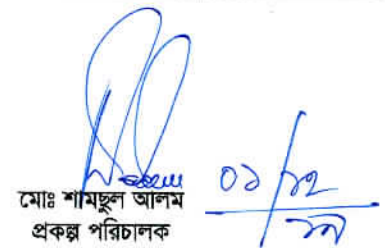 মোঃ শামছুল আলম
প্রকল্প পরিচালক
০১/১২